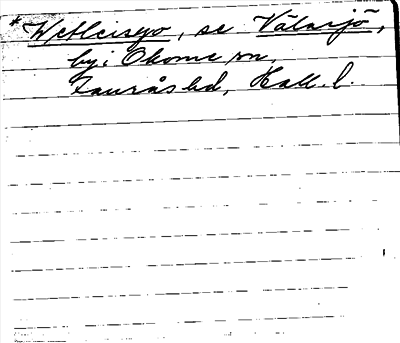 *Wetleisyo, se Välasjö,
by i Okome sn,
Faurås hd, Hall. l.